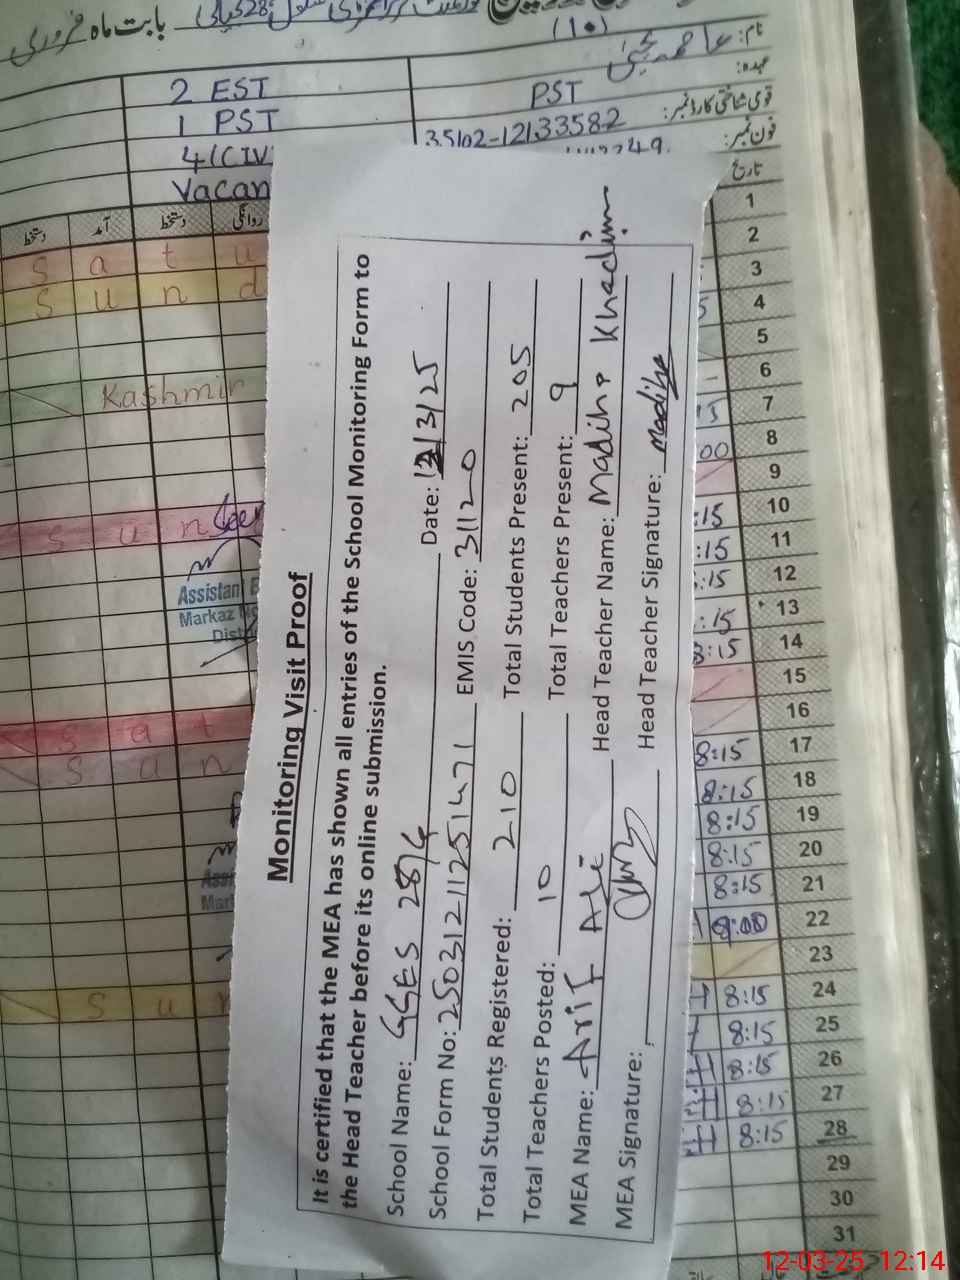 بابت ماہ فروری
(10)
نام:
عہدہ: PST
قومی شناختی کارڈ نمبر: 35102-12133582
فون نمبر:
تاریخ
2 EST
1 PST
Vacan
دستخط آمد دستخط روانگی
s a t u
s u n d
Kashmir
s u n
Assistan
Markaz
Dist
s a t
s u n
s u n
Monitoring Visit Proof
It is certified that the MEA has shown all entries of the School Monitoring Form to
the Head Teacher before its online submission.
School Name: GGES 28/G Date: 12/3/25
School Form No: 25031211251471 EMIS Code: 31120
Total Students Registered: 210 Total Students Present: 205
Total Teachers Posted: 10 Total Teachers Present: 9
MEA Name: Arif Ali Head Teacher Name: Madiha Khadim
MEA Signature: Head Teacher Signature: Madiha
1
2
3
4
5
6
7
8 00
9
10 :15
11 :15
12 :15
13 :15
14 8:15
15
16
17 8:15
18 8:15
19 8:15
20 8:15
21 8:15
22 9:00
23
24 8:15
25 8:15
26 8:15
27 8:15
28 8:15
29
30
31
12-03-25 12:14